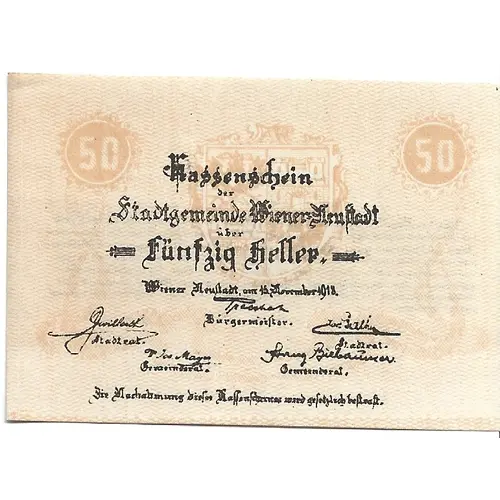 50 50
Kassenschein
der
Stadtgemeinde Wiener-Neustadt
über
Fünfzig Heller.
Wiener Neustadt, am 15. November 1918.
Bürgermeister.
Stadtrat. Stadtrat.
Gemeinderat. Gemeinderat.
Die Nachahmung dieses Kassenscheines wird gesetzlich bestraft.